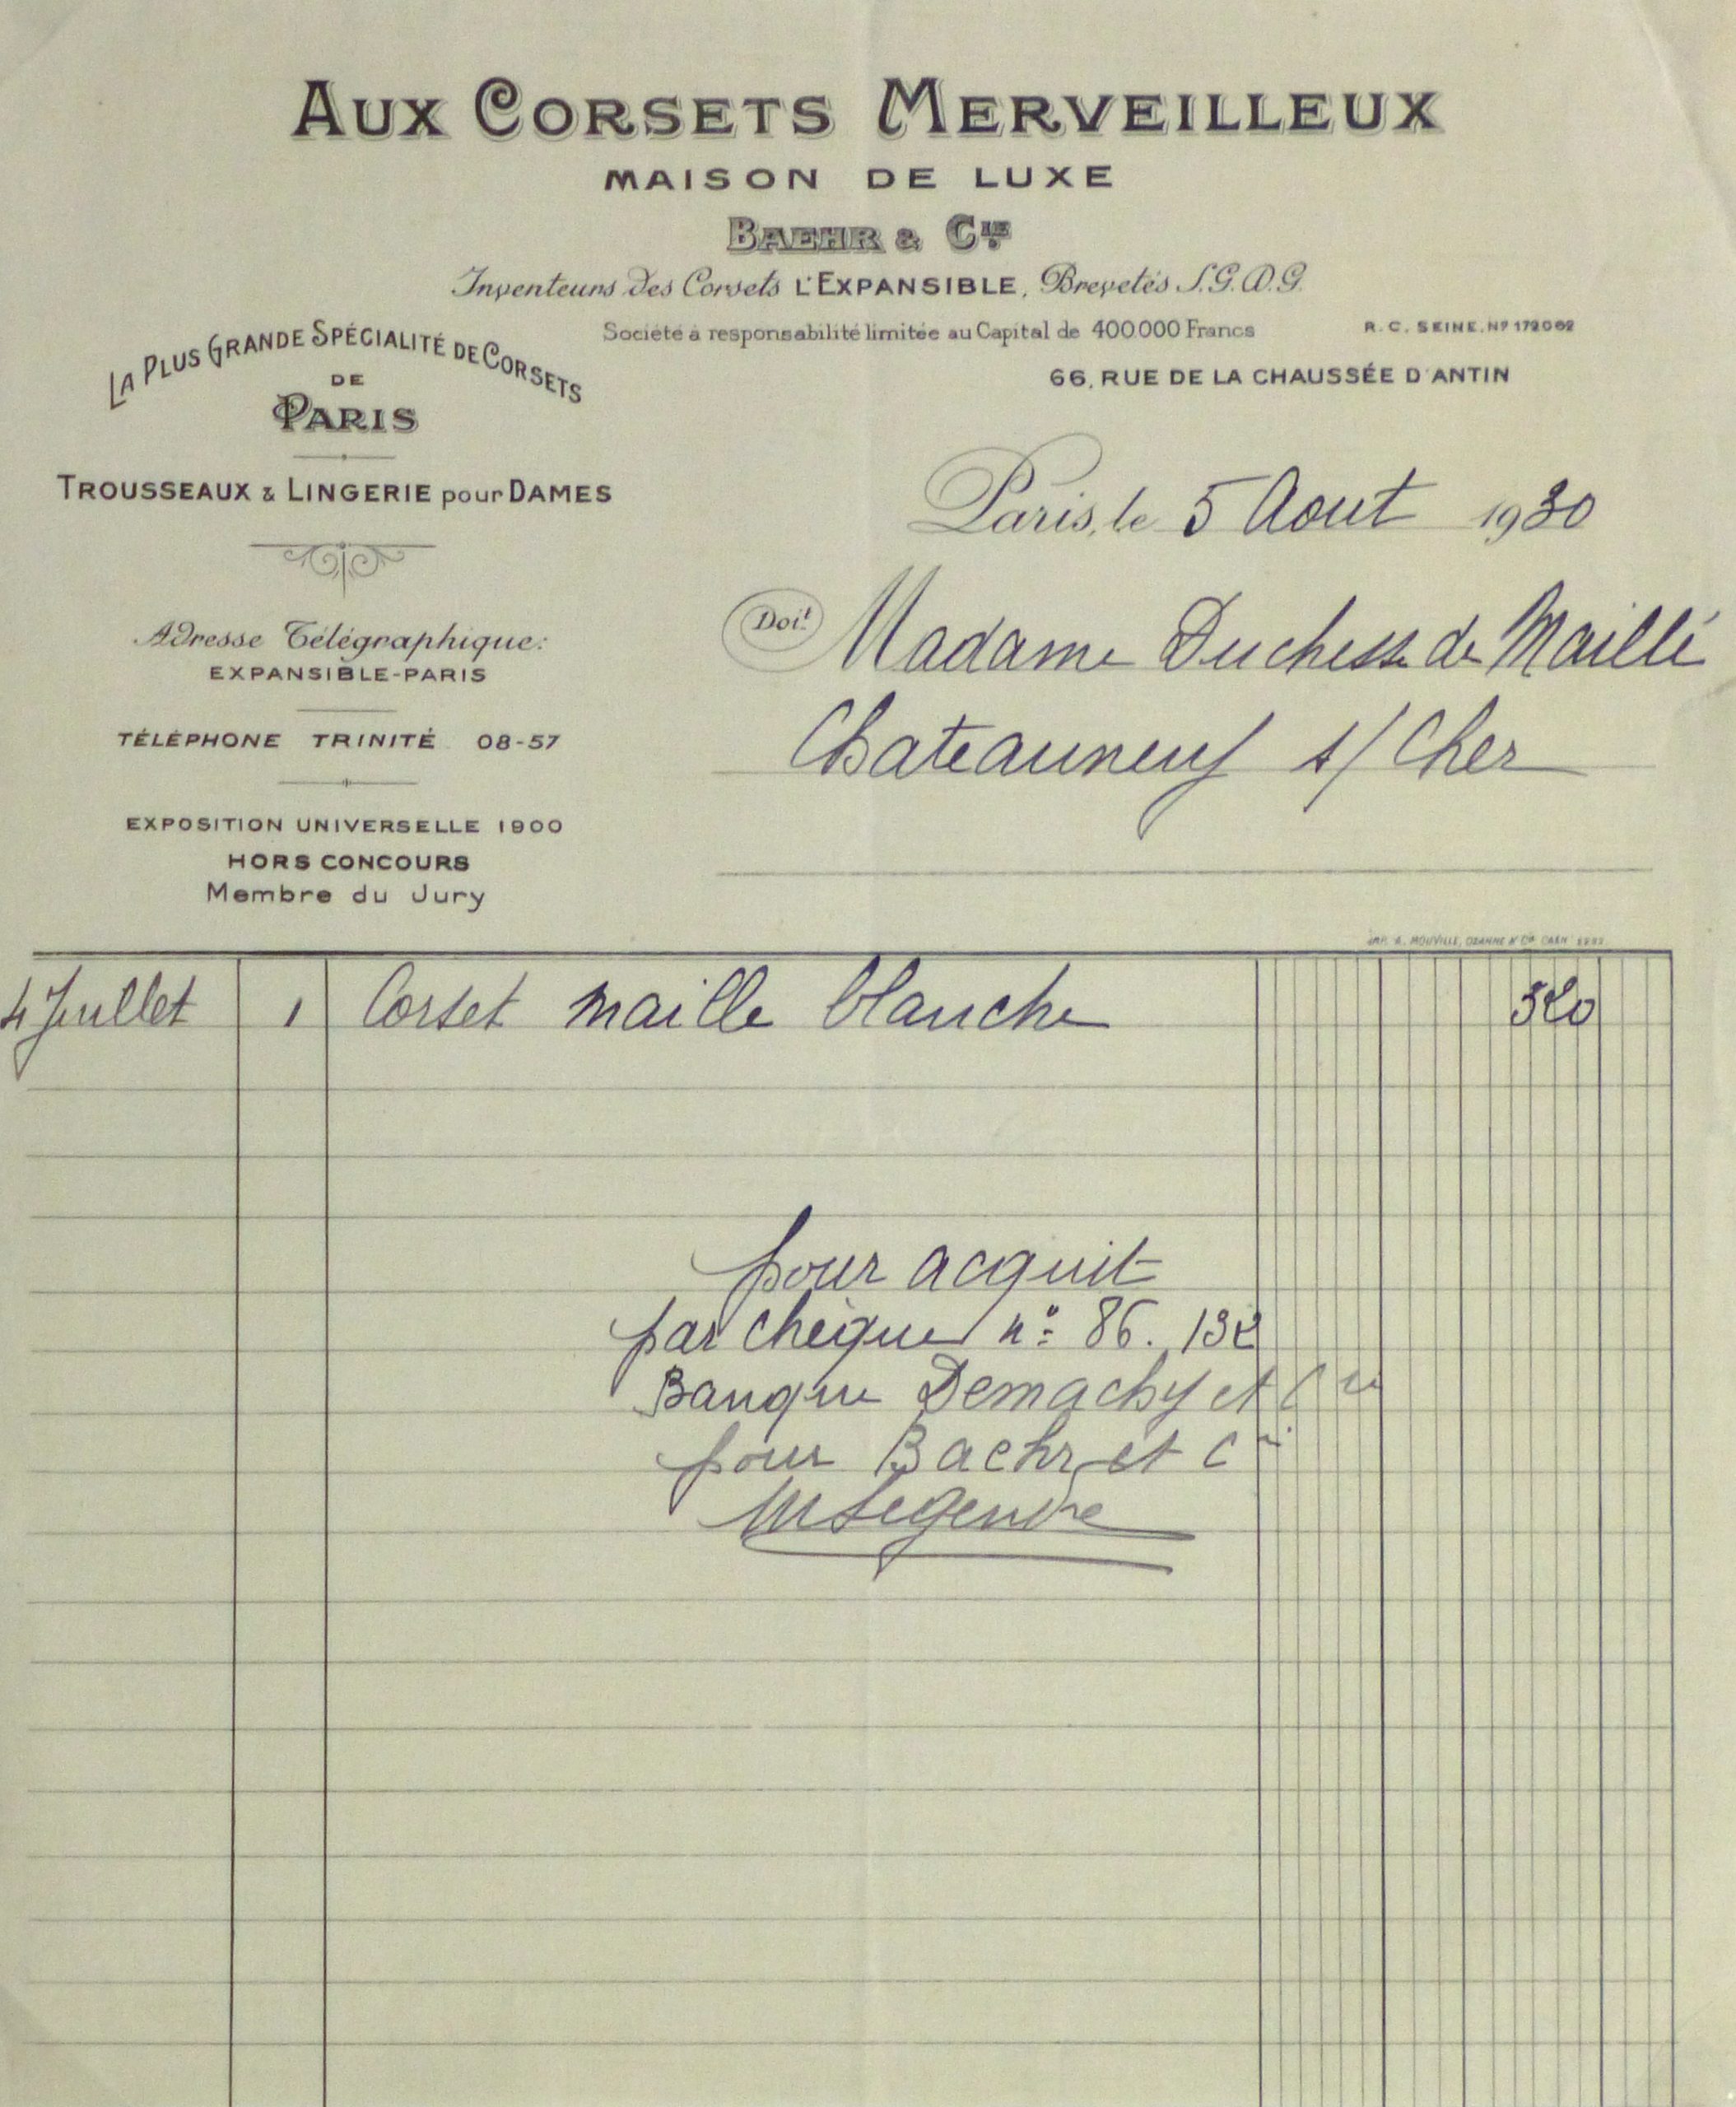 AUX CORSETS MERVEILLEUX
MAISON DE LUXE
BAEHR & CIE
Inventeurs des Corsets L'EXPANSIBLE, Brevetés S.G.D.G.
Société à responsabilité limitée au Capital de 400.000 Francs
R.C. SEINE. Nº 172062
66, RUE DE LA CHAUSSÉE D'ANTIN
LA PLUS GRANDE SPÉCIALITÉ DE CORSETS
DE
PARIS
TROUSSEAUX & LINGERIE pour DAMES
Adresse Télégraphique:
EXPANSIBLE-PARIS
TÉLÉPHONE TRINITÉ 08-57
EXPOSITION UNIVERSELLE 1900
HORS CONCOURS
Membre du Jury
Paris, le 5 Aout 1930
Doit Madame Duchesse de Maillé
Chateauneuf s/ Cher
IMP. A. MOUVILLE, OZANNE & Cie CAEN
4 Juillet 1 Corset maille blanche 520
pour acquit
par chèque nº 86.132
Banque Demachy et Cie
pour Baehr et Cie
MLegendre